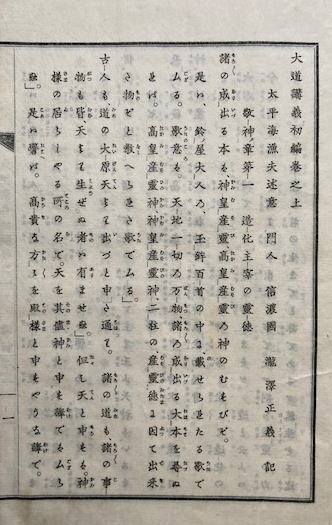 大道講義初編卷之上
太平海漁夫述意 門人 信濃國 瀧澤正義 記
敬神章第一 造化主宰の靈德
諸の成出る本も、神皇産靈高皇産靈の神のむすびぞ。
是い、鈴屋大人の、玉鉾百首の中よ載せられたる歌で
ムる。歌意も、天地一切の万物、諸の成出る大本を尋ぬ
れば。高皇産靈神皇産靈神、二柱の産靈德よ因て出來
さ物どと歌へらまさ歌でムる」
古人も、道の大原天よ出づと申さ通で。諸の道も、諸の事
物も皆天よて生ぜぬ者い有ませぬ。但し天と申も。神
様の居らしやる所の名で。天を其儘神と申を譬でムら
ぬ」。是い譬ば。高貴な方を殿様と申をやうな譯で。
一